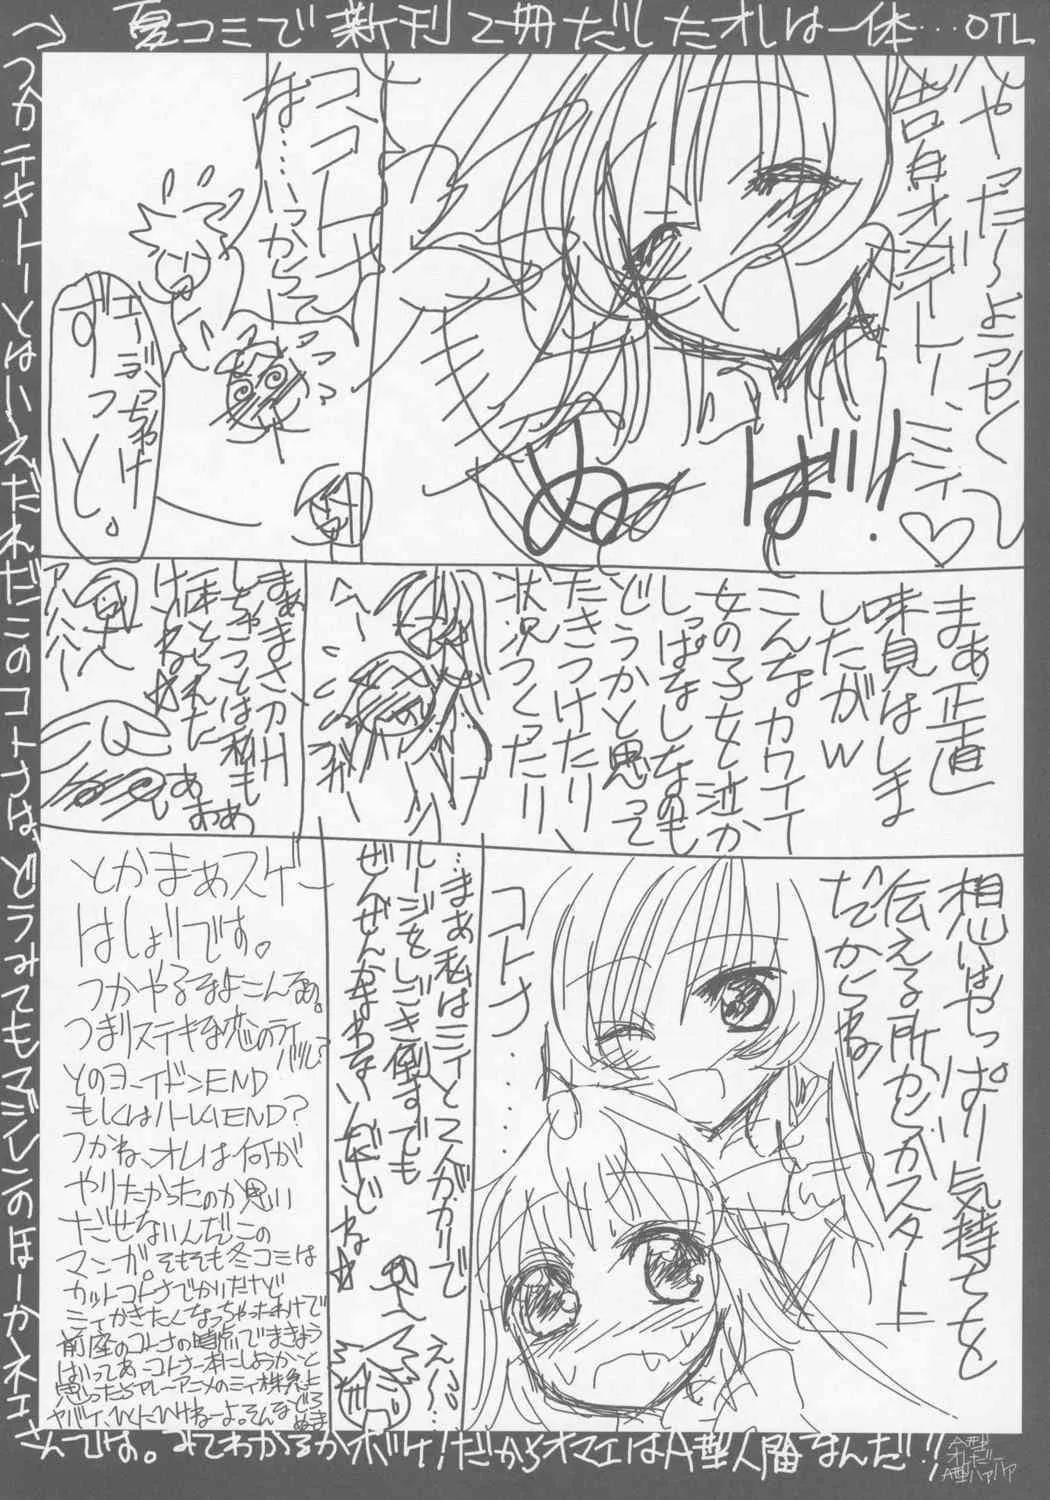 夏コミで新刊2冊だしたオレは一体…OTL
やった〜ようやく
告白オメデトー、ミィ♡
ば!
ぬ
コ、コトナ
な…いつからそこ
エーぶっちゃけ
ずっと。
まぁ正直
味見はしま
したがw
こんなカワイイ
女の子を泣か
しっぱなしなのも
どうかと思って
たきつけたり
状況つくったり
へへ〜
まぁまさかH
しちゃうとは私も
アハハハ〜
想いはやっぱり気持ちを
伝える所からがスタート
だからね
コトナ……
…まぁ私はミィと二人がかりで
ルージをしごき倒すでも
ぜんぜんかまわないんだけど
ね☆
え〜…
とかまぁスゲー
はしょりです。
つかやるなよこんなぁ。
つまりステキな恋のライバル?
とのヨーイドンEND
もしくはハーレムEND?
つかね、オレは何が
やりたかったのか思い
だせないんだこの
マンガ。そもそも冬コミは
カットコトナでかいたけど
ミィかきたくなっちゃったわけで
前座のコトナの時点で
あ、コトナ本にしよっかと
思ったらアレーアニメのミィ株急上
ヤバイ、ひくにひけねーよ。そんなでろ
ぬま
つかテキトーとはいえだれだこのコトナは、どうみてもマジレンのほーかネエ
さんです。みてわかるかボケ!だからオマエはA型人間なんだ!!
A型
オレだー
A型ハァハァ